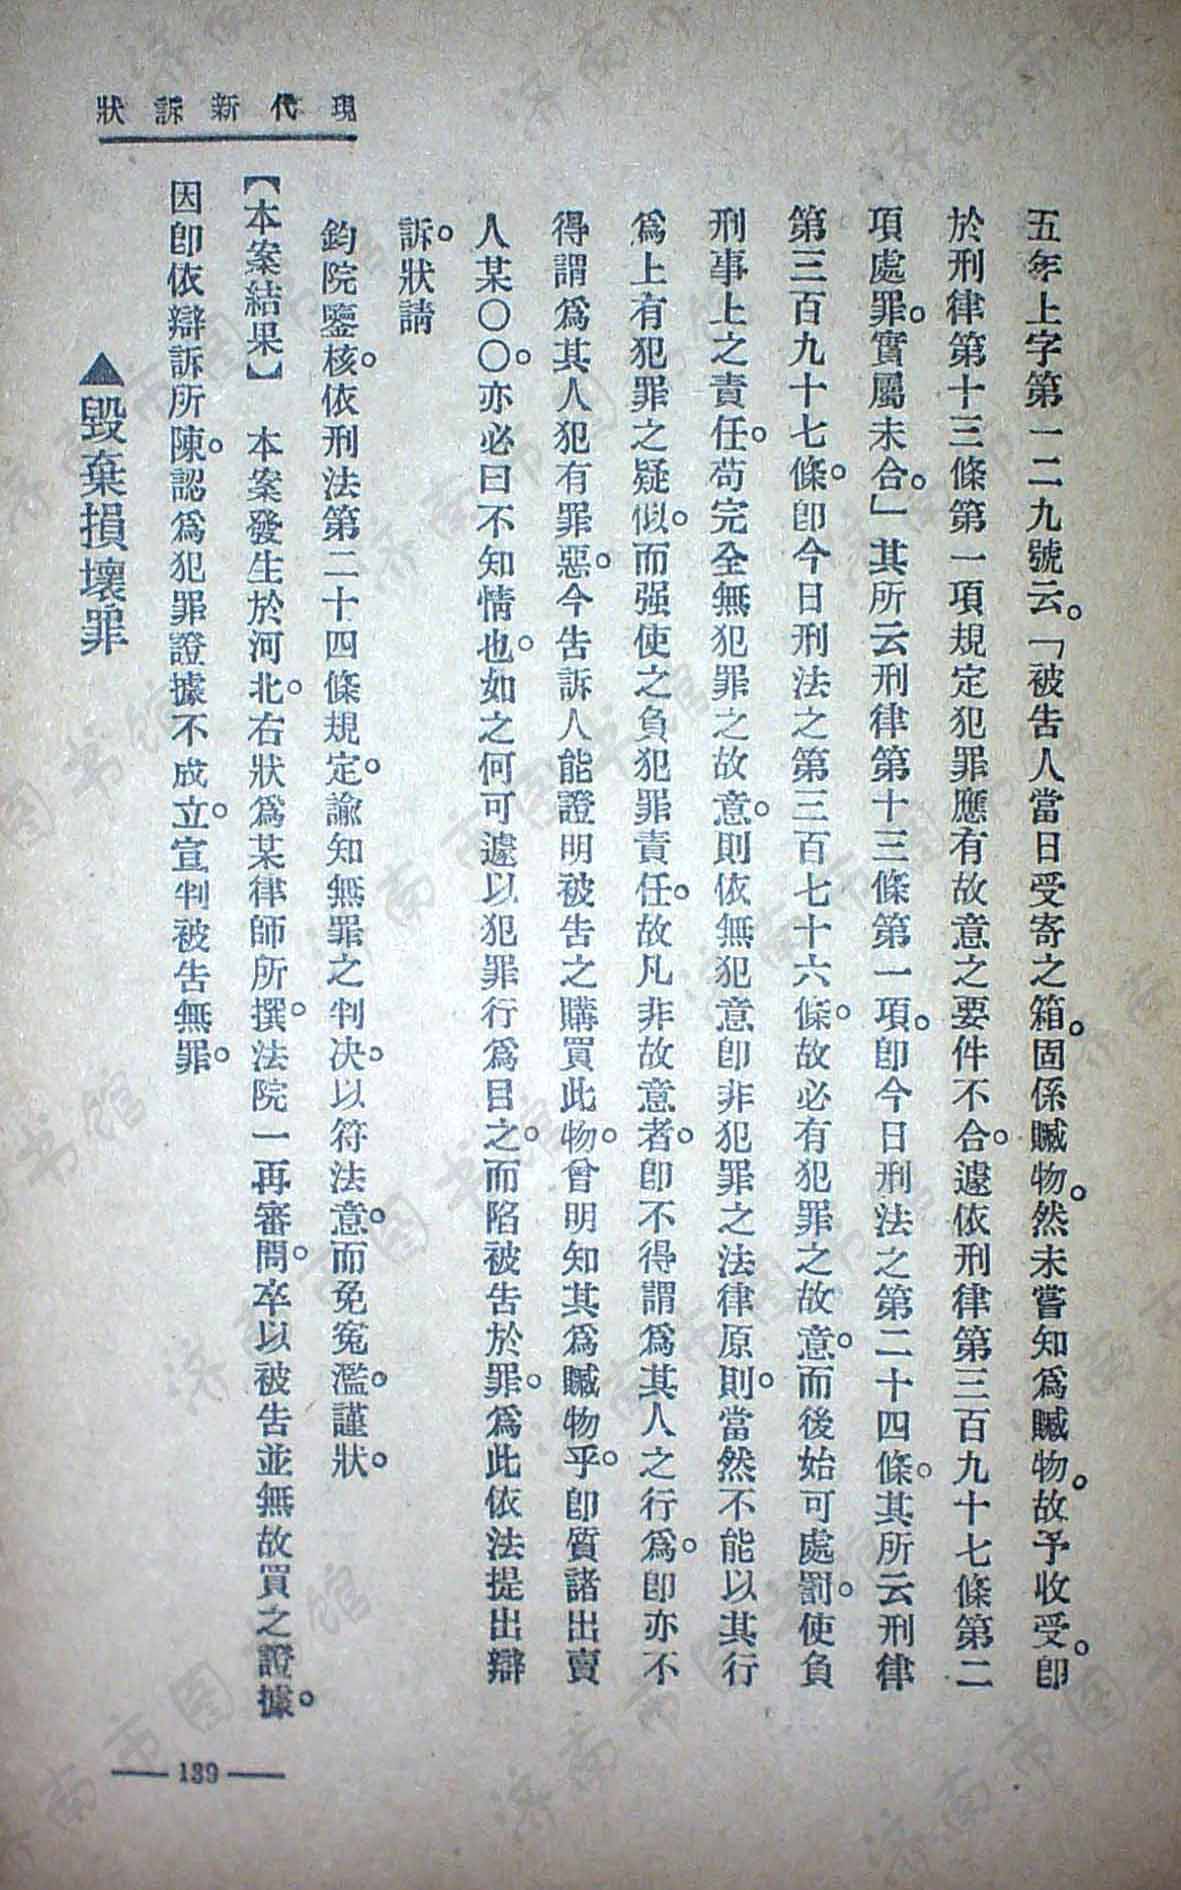 現代新訴狀
五年上字第一二九號云。「被告人當日受寄之箱。固係贓物。然未嘗知爲贓物。故予收受。卽
於刑律第十三條第一項規定犯罪應有故意之要件不合。遽依刑律第三百九十七條第二
項處罪。實屬未合。」其所云刑律第十三條第一項。卽今日刑法之第二十四條。其所云刑律
第三百九十七條。卽今日刑法之第三百七十六條。故必有犯罪之故意。而後始可處罰。使負
刑事上之責任。苟完全無犯罪之故意。則依無犯意卽非犯罪之法律原則。當然不能以其行
爲上有犯罪之疑似。而强使之負犯罪責任。故凡非故意者。卽不得謂爲其人之行爲。卽亦不
得謂爲其人犯有罪惡。今告訴人能證明被告之購買此物。曾明知其爲贓物乎。卽質諸出賣
人某〇〇。亦必曰不知情也。如之何可遽以犯罪行爲目之。而陷被告於罪。爲此依法提出辯
訴。狀請
鈞院鑒核。依刑法第二十四條規定。諭知無罪之判决。以符法意。而免寃濫。謹狀。
【本案結果】 本案發生於河北。右狀爲某律師所撰。法院一再審問。卒以被告並無故買之證據。
因卽依辯訴所陳。認爲犯罪證據不成立。宣判被告無罪。
▲毀棄損壞罪
—139—
济南市图书馆